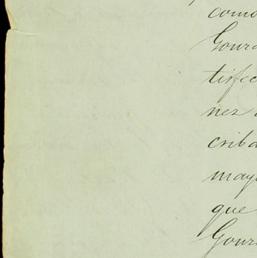 como
Gour
tisfec
nez
criba
mayo
que
Gour